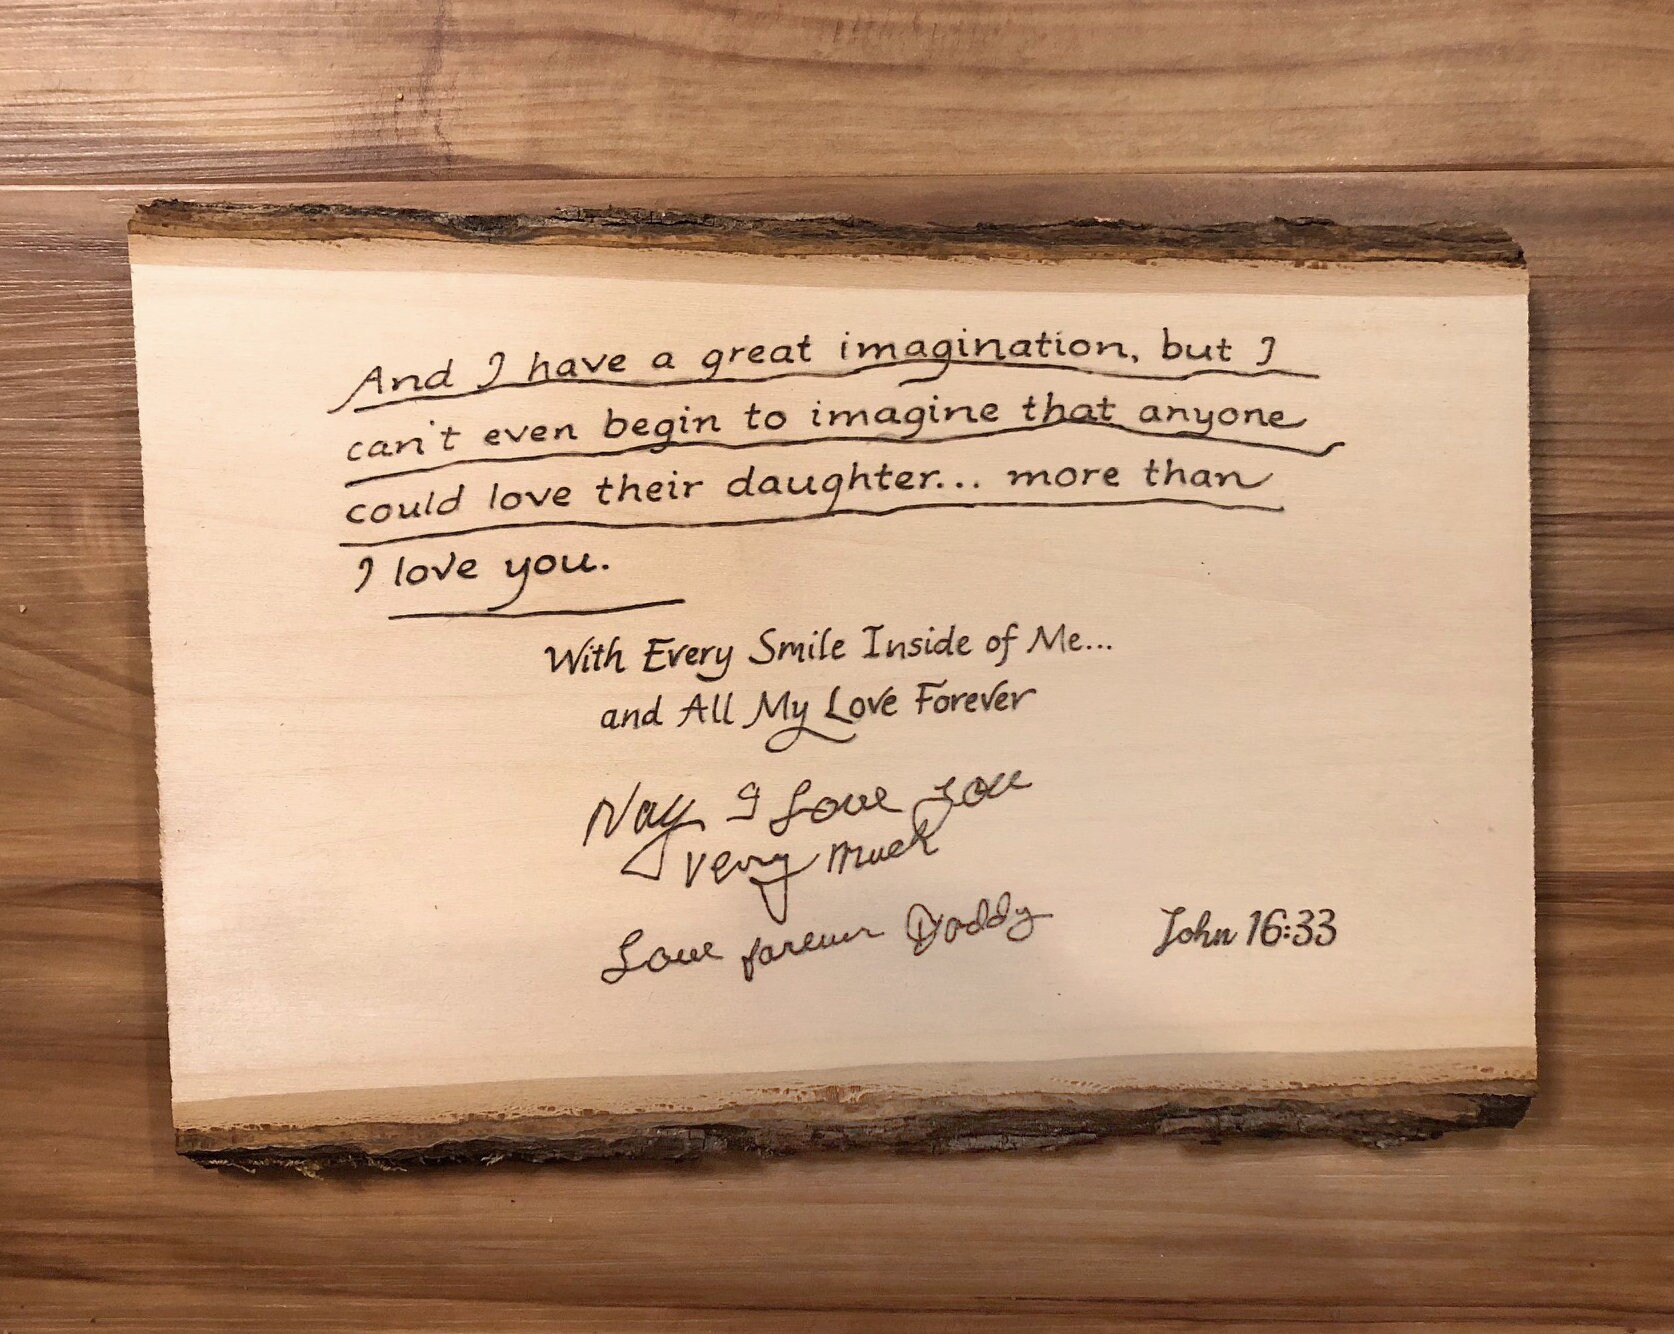 And I have a great imagination, but I
can't even begin to imagine that anyone
could love their daughter... more than
I love you.
With Every Smile Inside of Me...
and All My Love Forever
Nay I Love You
very much
Love forever Daddy
John 16:33